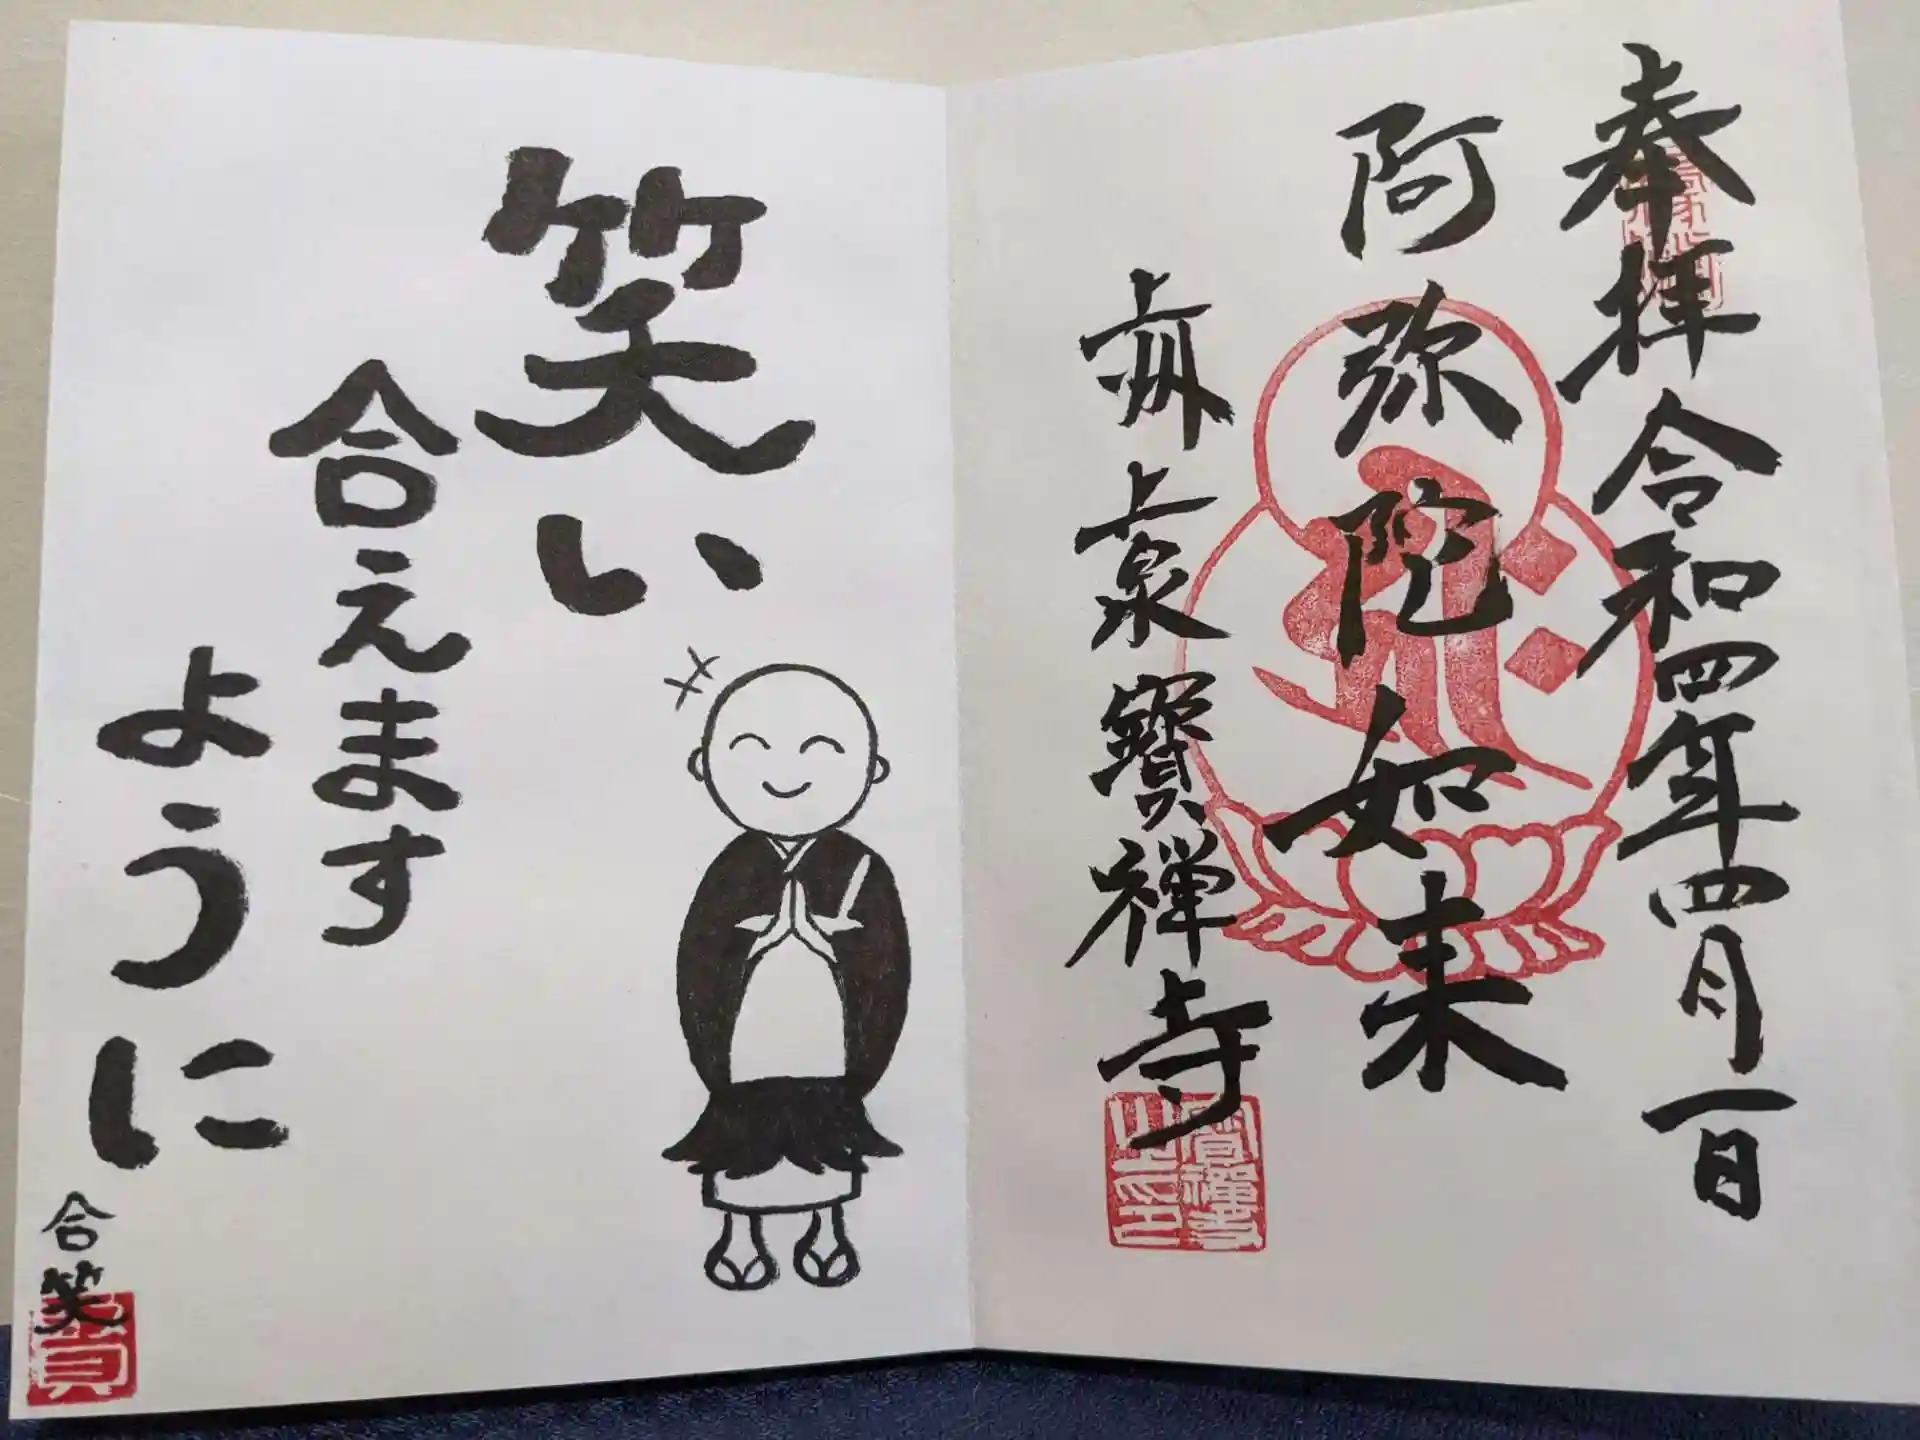 奉拝 令和四年四月一日
阿弥陀如来
上州上泉寶禅寺
笑い
合えます
ように
合笑